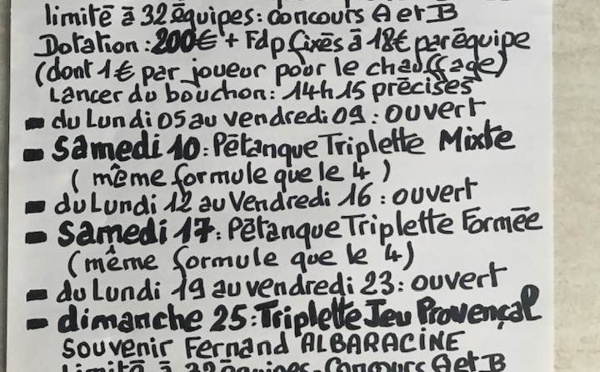 limité à 32 équipes: concours A et B
Dotation: 200€ + Fdp fixés à 18€ par équipe
(dont 1€ par joueur pour le chauffage)
Lancer du bouchon: 14h15 précises
- du Lundi 05 au vendredi 09: ouvert
- Samedi 10: Pétanque Triplette Mixte
(même formule que le 4)
- du Lundi 12 au Vendredi 16: ouvert
- Samedi 17: Pétanque Triplette Formée
(même formule que le 4)
- du Lundi 19 au vendredi 23: ouvert
- dimanche 25: Triplette Jeu Provençal
Souvenir Fernand ALBARACINE
Limité à 32 équipes. Concours A et B